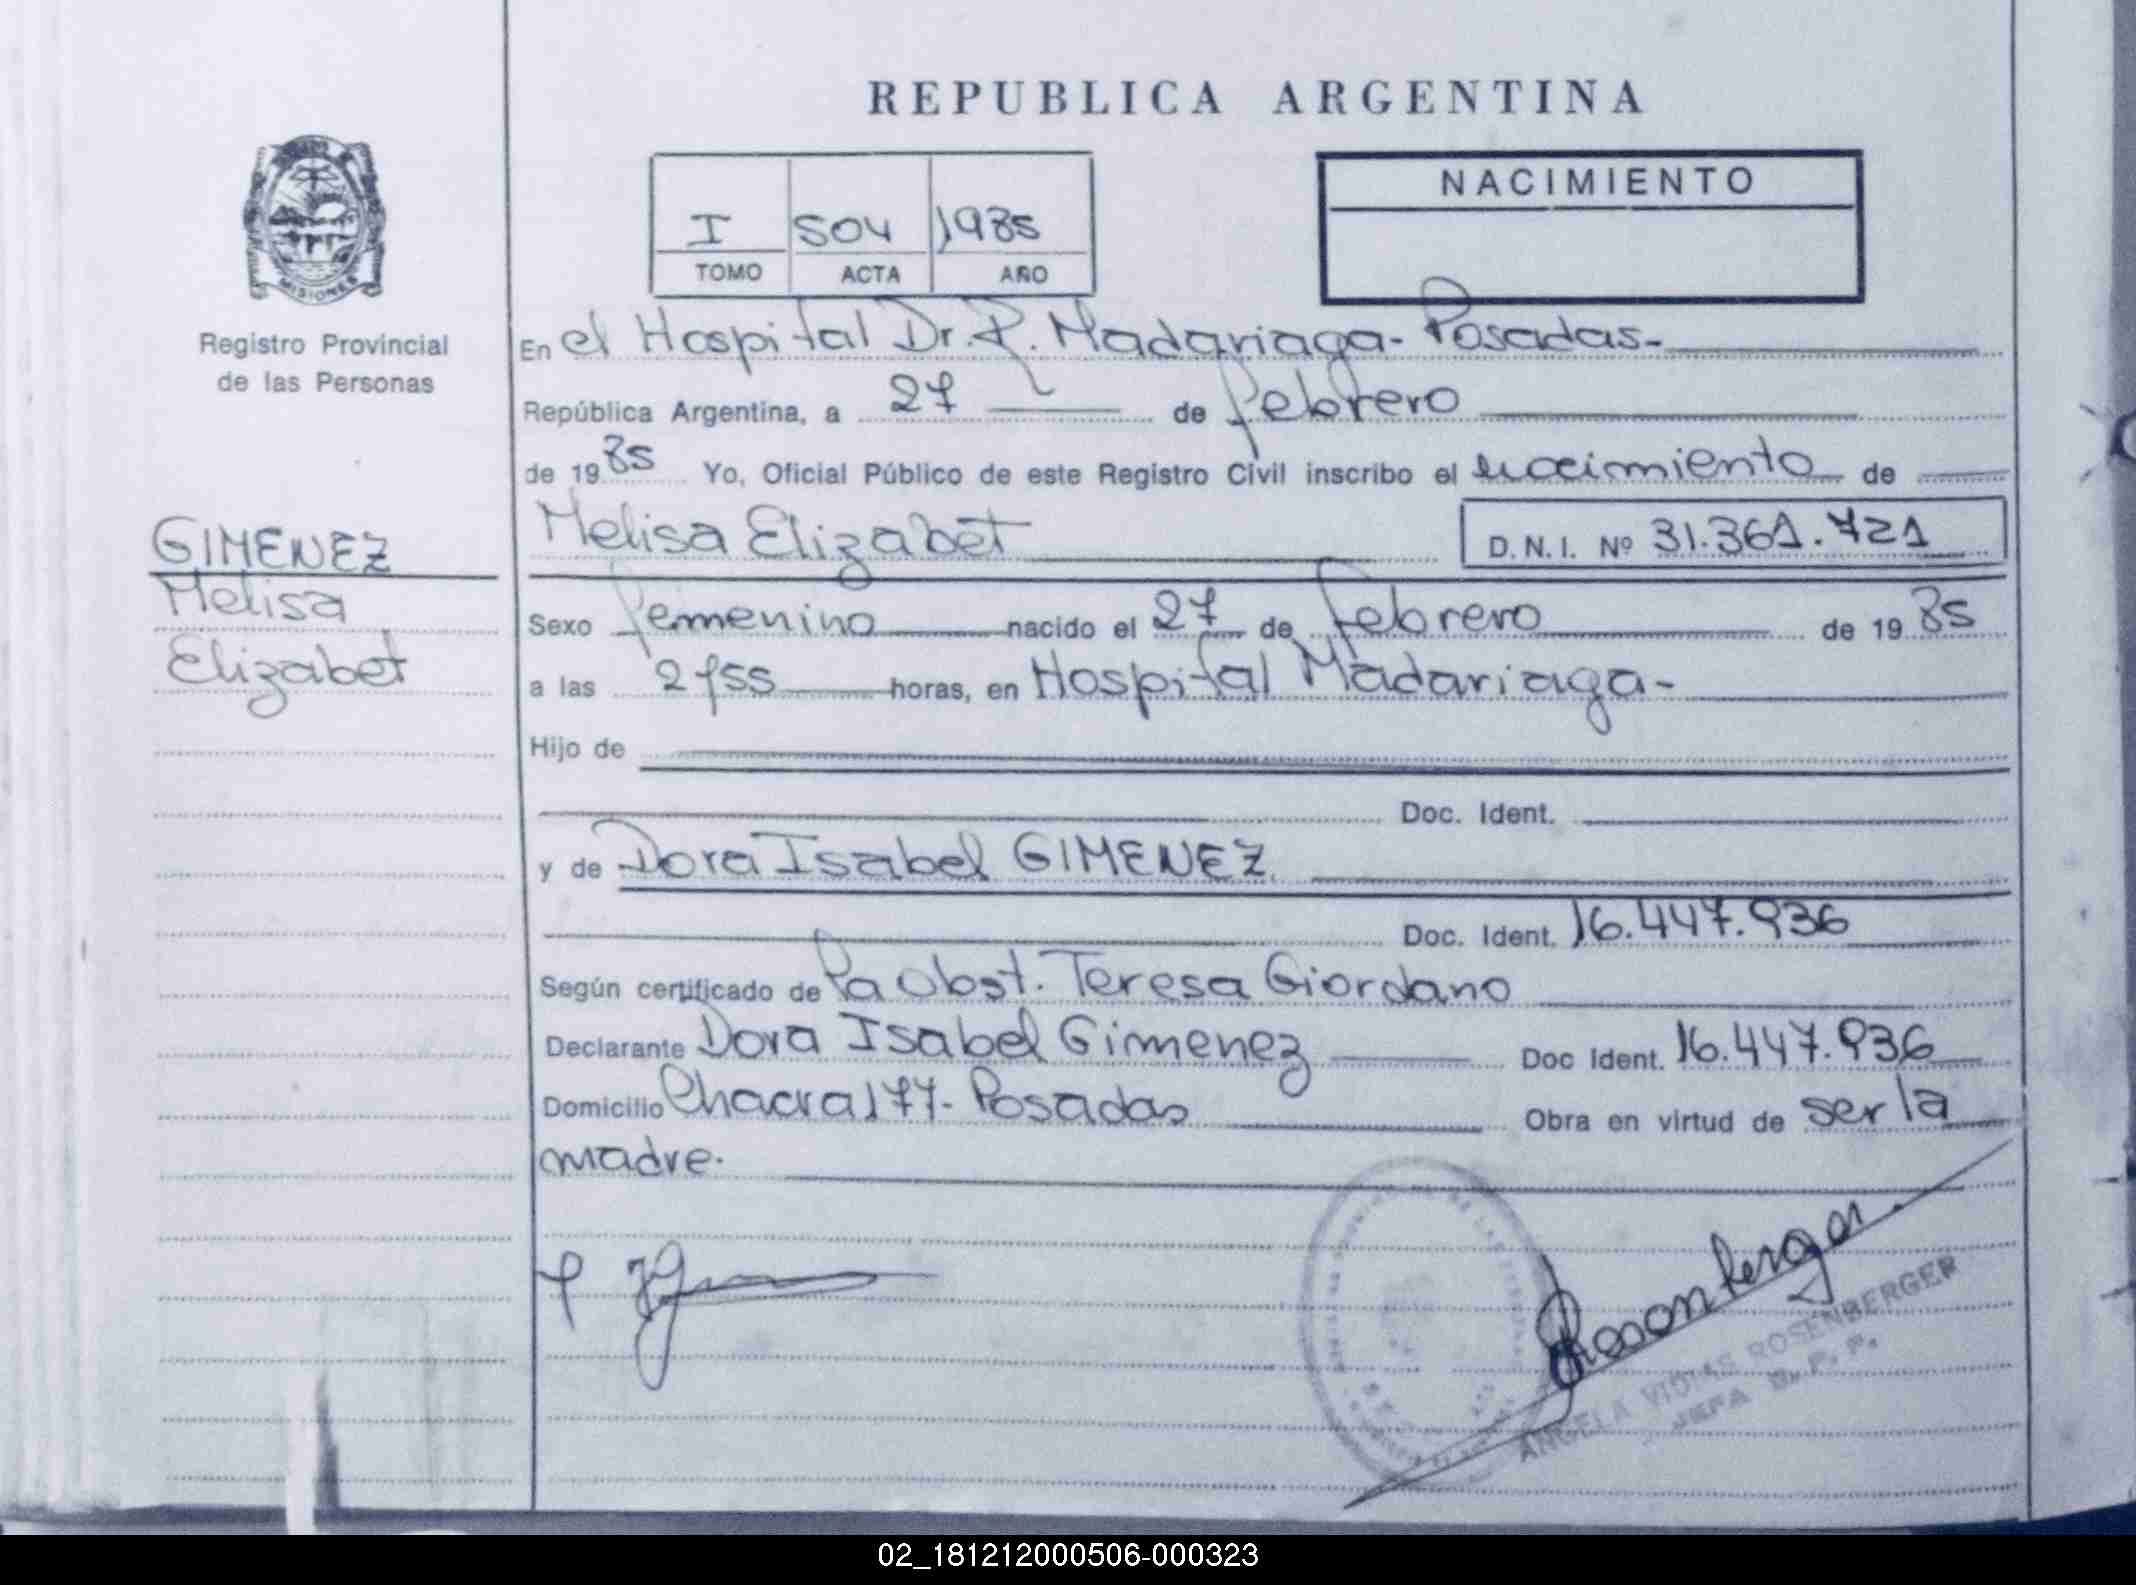 REPUBLICA ARGENTINA
NACIMIENTO
I 504 1985
TOMO ACTA AÑO
MISIONES
Registro Provincial
de las Personas
En el Hospital Dr. R. Madariaga- Posadas-
República Argentina, a 27 de febrero
de 1985 Yo, Oficial Público de este Registro Civil inscribo el nacimiento de
GIMENEZ
Melisa
Elizabet
Melisa Elizabet D.N.I. Nº 31.361.721
Sexo femenino nacido el 27 de febrero de 1985
a las horas, en Hospital Madariaga-
Hijo de
Doc. Ident.
y de Dora Isabel GIMENEZ.
Doc. Ident. 16.447.936
Según certificado de La Obst. Teresa Giordano
Declarante Dora Isabel Gimenez Doc Ident. 16.447.936
Domicilio Chacra 177- Posadas Obra en virtud de ser la
madre.
Rosenberger
ANGELA ROSENBERGER
JEFA
02_181212000506-000323